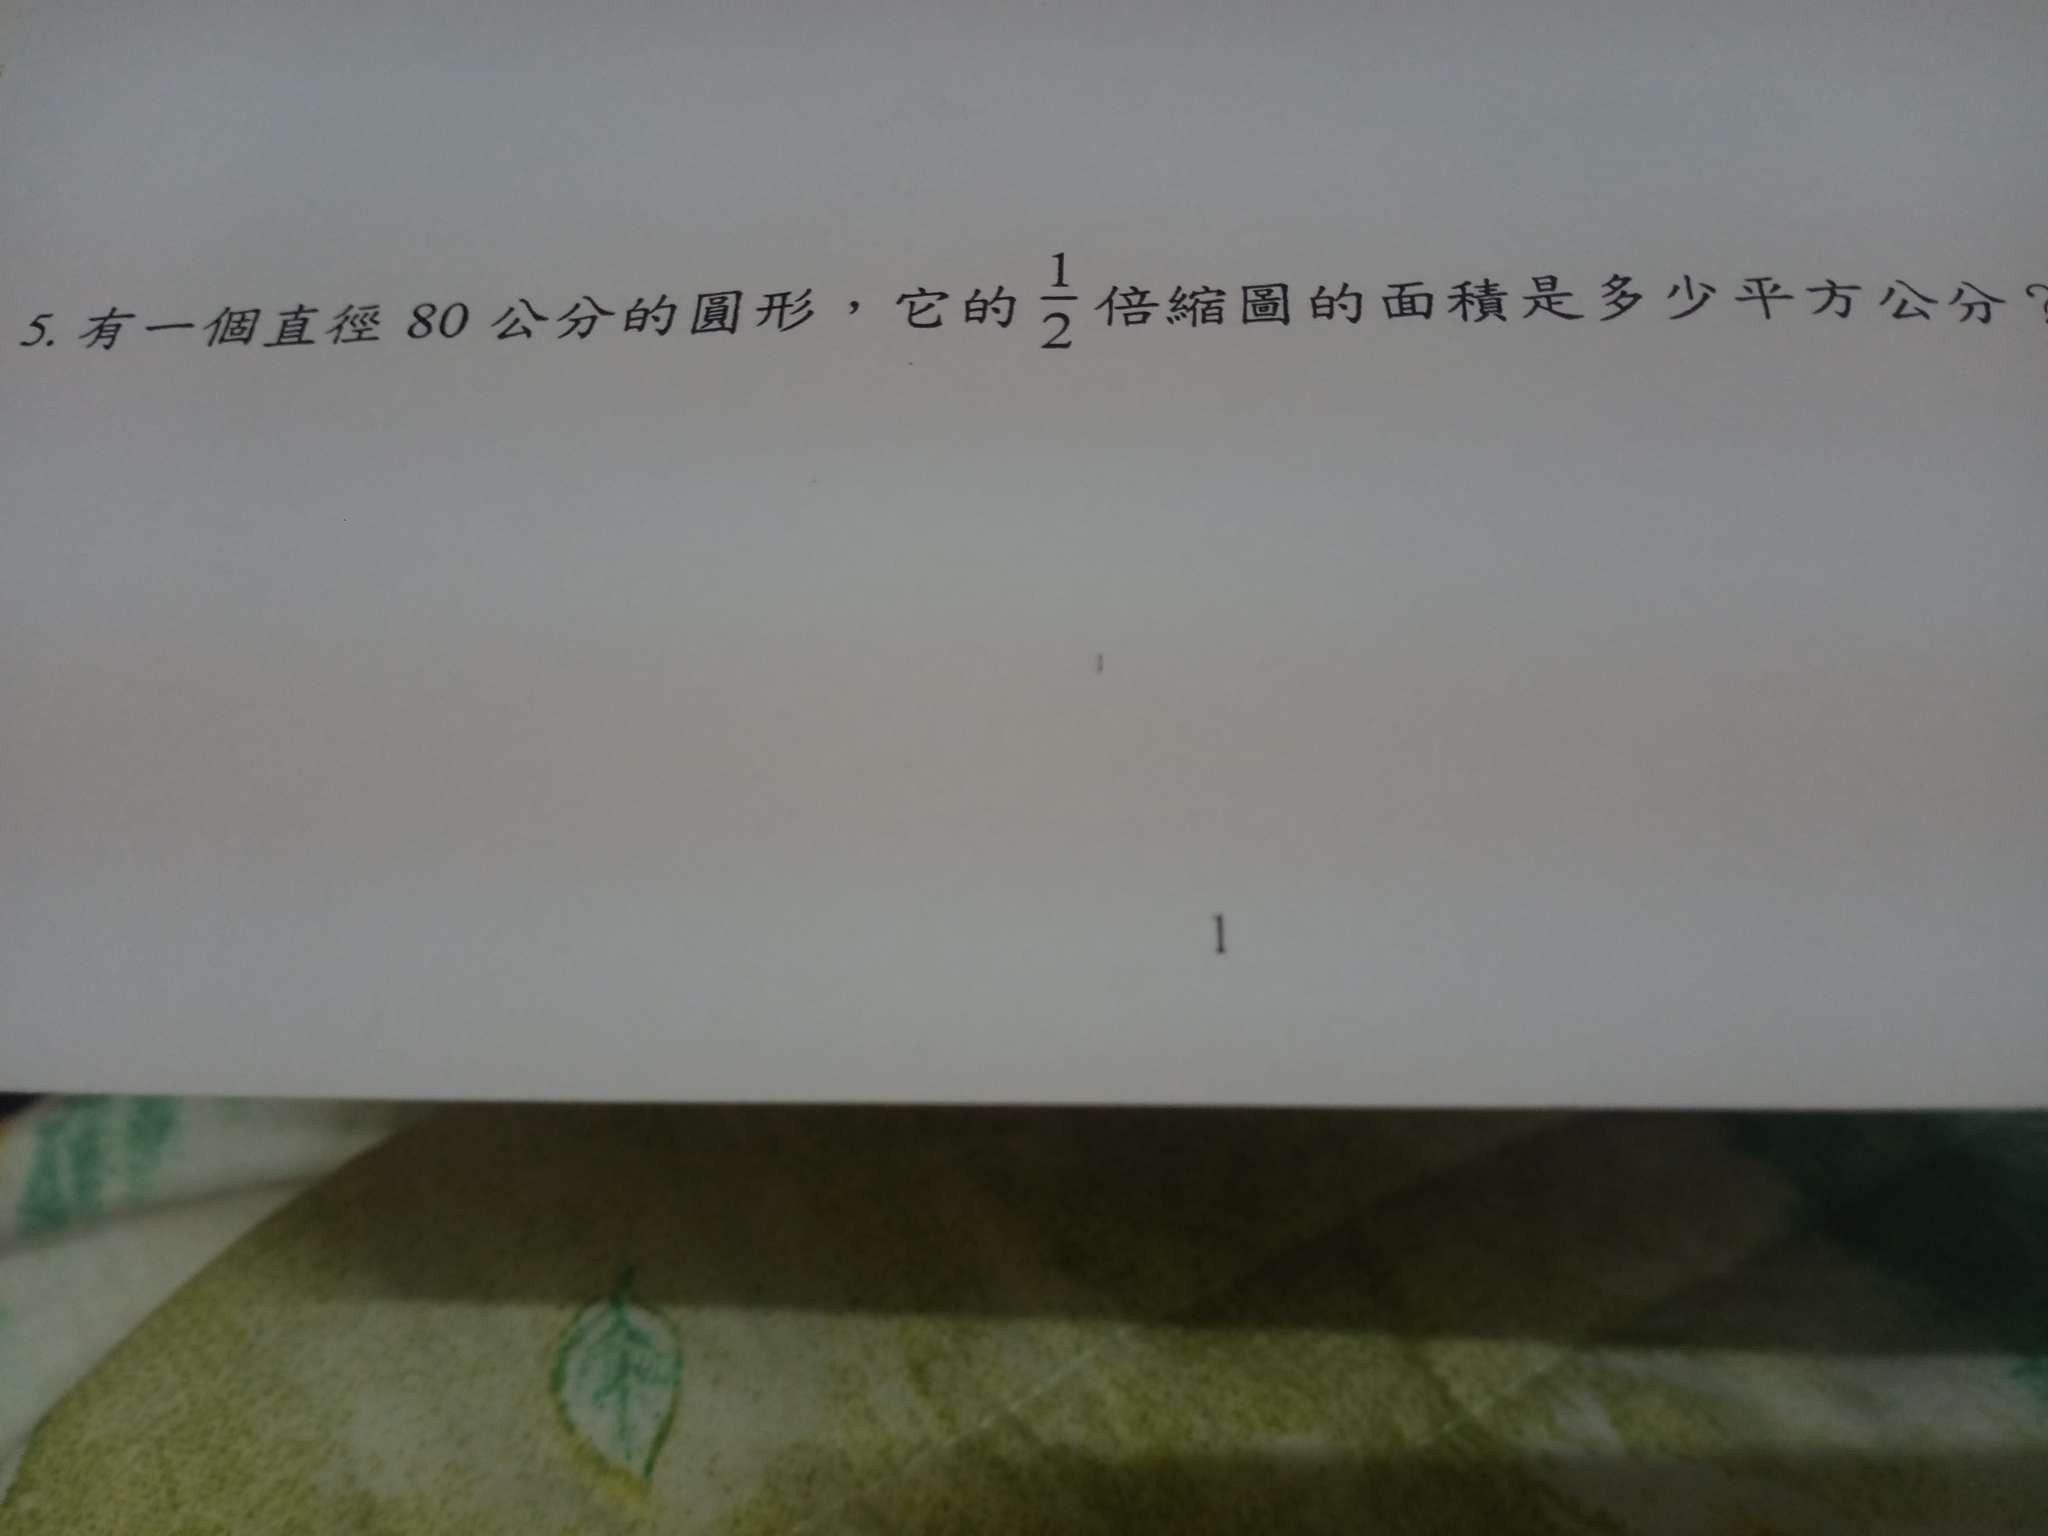 5. 有一個直徑 80 公分的圓形，它的 1/2 倍縮圖的面積是多少平方公分？
1